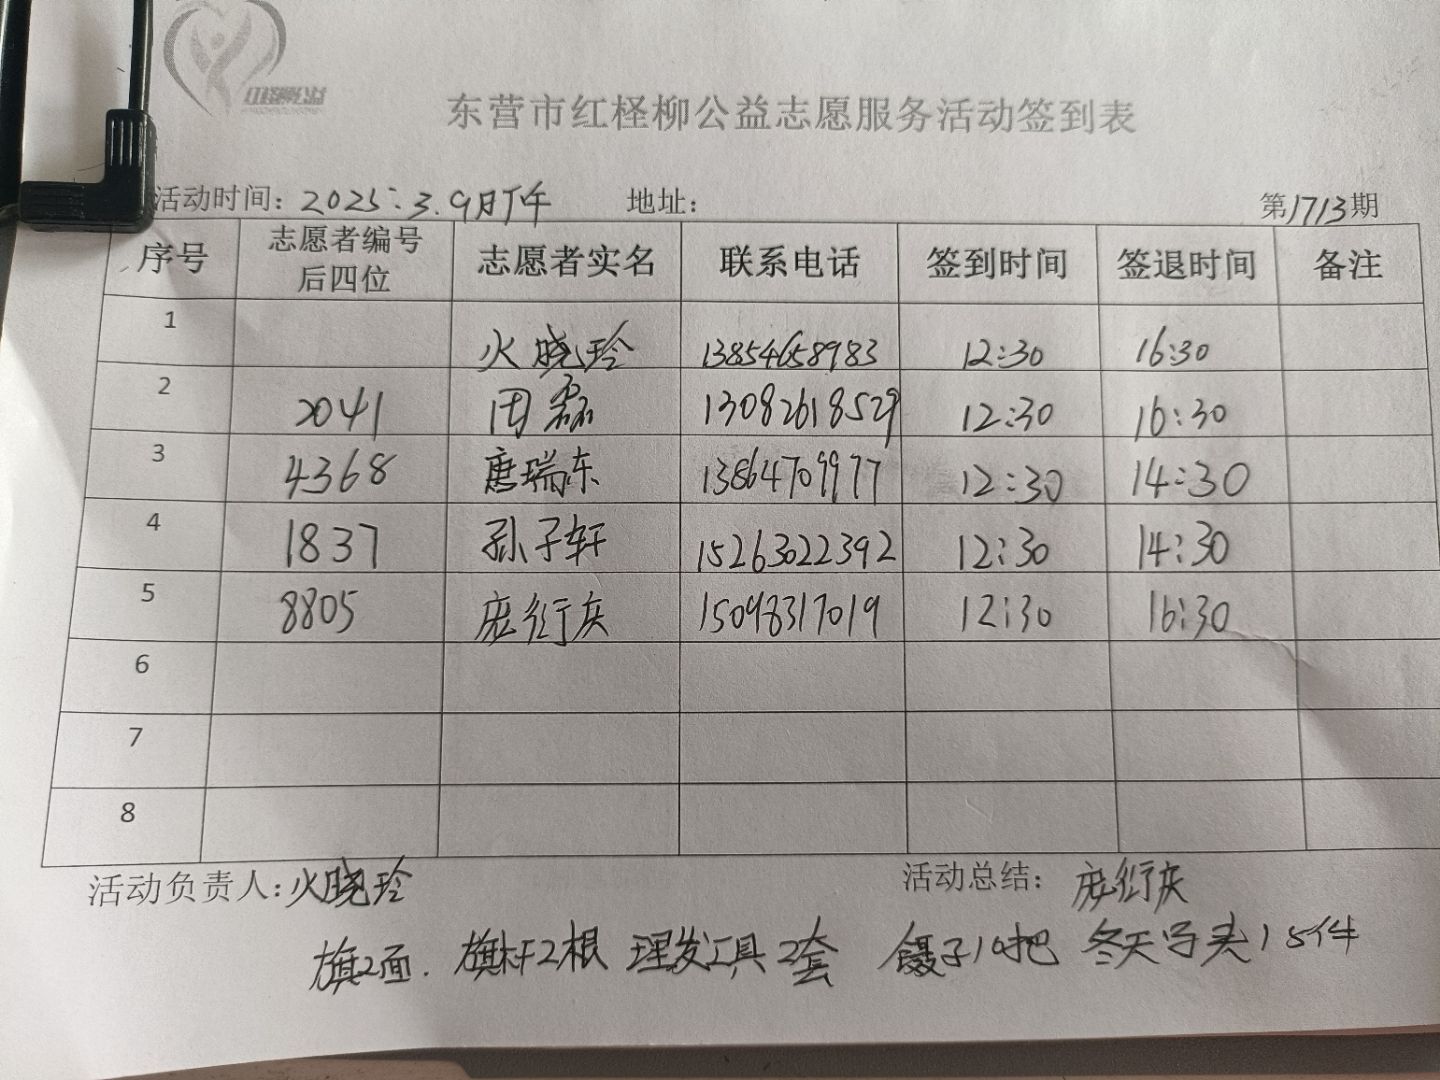 东营市红柽柳公益志愿服务活动签到表
活动时间：2025.3.9日下午 地址： 第1713期
序号 志愿者编号后四位 志愿者实名 联系电话 签到时间 签退时间 备注
1 火晓玲 13854658983 12:30 16:30
2 2041 周磊 13082618529 12:30 16:30
3 4368 唐瑞东 13864709977 12:30 14:30
4 1837 孙子轩 15263022392 12:30 14:30
5 8805 庞衍庆 15098317019 12:30 16:30
6
7
8
活动负责人：火晓玲 活动总结：庞衍庆
旗2面. 旗杆2根 理发工具2套 镊子10把 冬天马夹15件